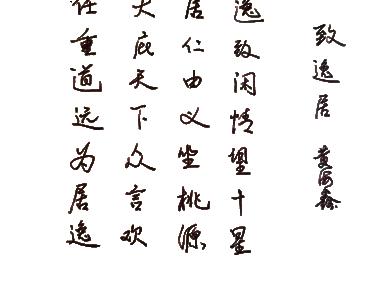 致逸居 黄海鑫
逸致闲情望十星
居仁由义坐桃源
大庇天下众言欢
任重道远为居逸